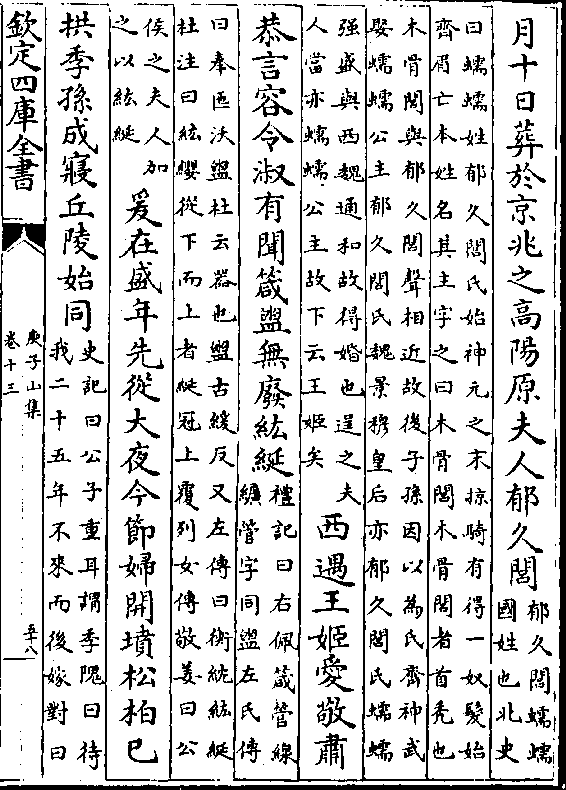 月十日葬於京兆之高陽原夫人郁久閭郁久閭蠕蠕國姓也北史
曰蠕蠕姓郁久閭氏始神元之末掠騎有得一奴髮始齊眉亡本姓名其主字之曰木骨閭木骨閭者首秃也
木骨閭與郁久閭聲相近故後子孫因以為氏齊神武娶蠕蠕公主郁久閭氏魏景穆皇后亦郁久閭氏蠕蠕
强盛與西魏通和故得婚也逞之夫人當亦蠕蠕公主故下云王姬矣西遇王姬愛敬肅
恭言容令淑有聞箴盥無廢紘綖禮記曰右佩箴管線纊管字同盥左氏傳
曰奉匜沃盥杜云器也盥古緩反又左傳曰衡紞紘綖杜注曰紘纓從下而上者綖冠上覆列女傳敬姜曰公
侯之夫人加之以紘綖爰在盛年先從大夜今節婦開墳松柏已
拱季孫成寢丘陵始同史記曰公子重耳謂季隗曰待我二十五年不來而後嫁對曰
欽定四庫全書
庾子山集
卷十三
五十八